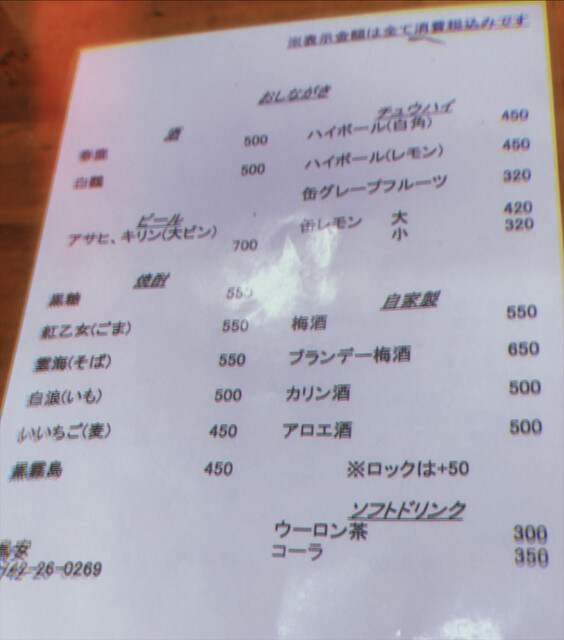 ※表示金額は全て消費税込みです
おしながき
酒
春鹿 500
白鶴 500
ビール
アサヒ、キリン(大ビン) 700
焼酎
黒糖 550
紅乙女(ごま) 550
雲海(そば) 550
白浪(いも) 500
いいちご(麦) 450
黒霧島 450
鳥安
742-26-0269
チュウハイ
ハイボール(白角) 450
ハイボール(レモン) 450
缶グレープフルーツ 320
缶レモン 大 420
小 320
自家製
梅酒 550
ブランデー梅酒 650
カリン酒 500
アロエ酒 500
※ロックは+50
ソフトドリンク
ウーロン茶 300
コーラ 350